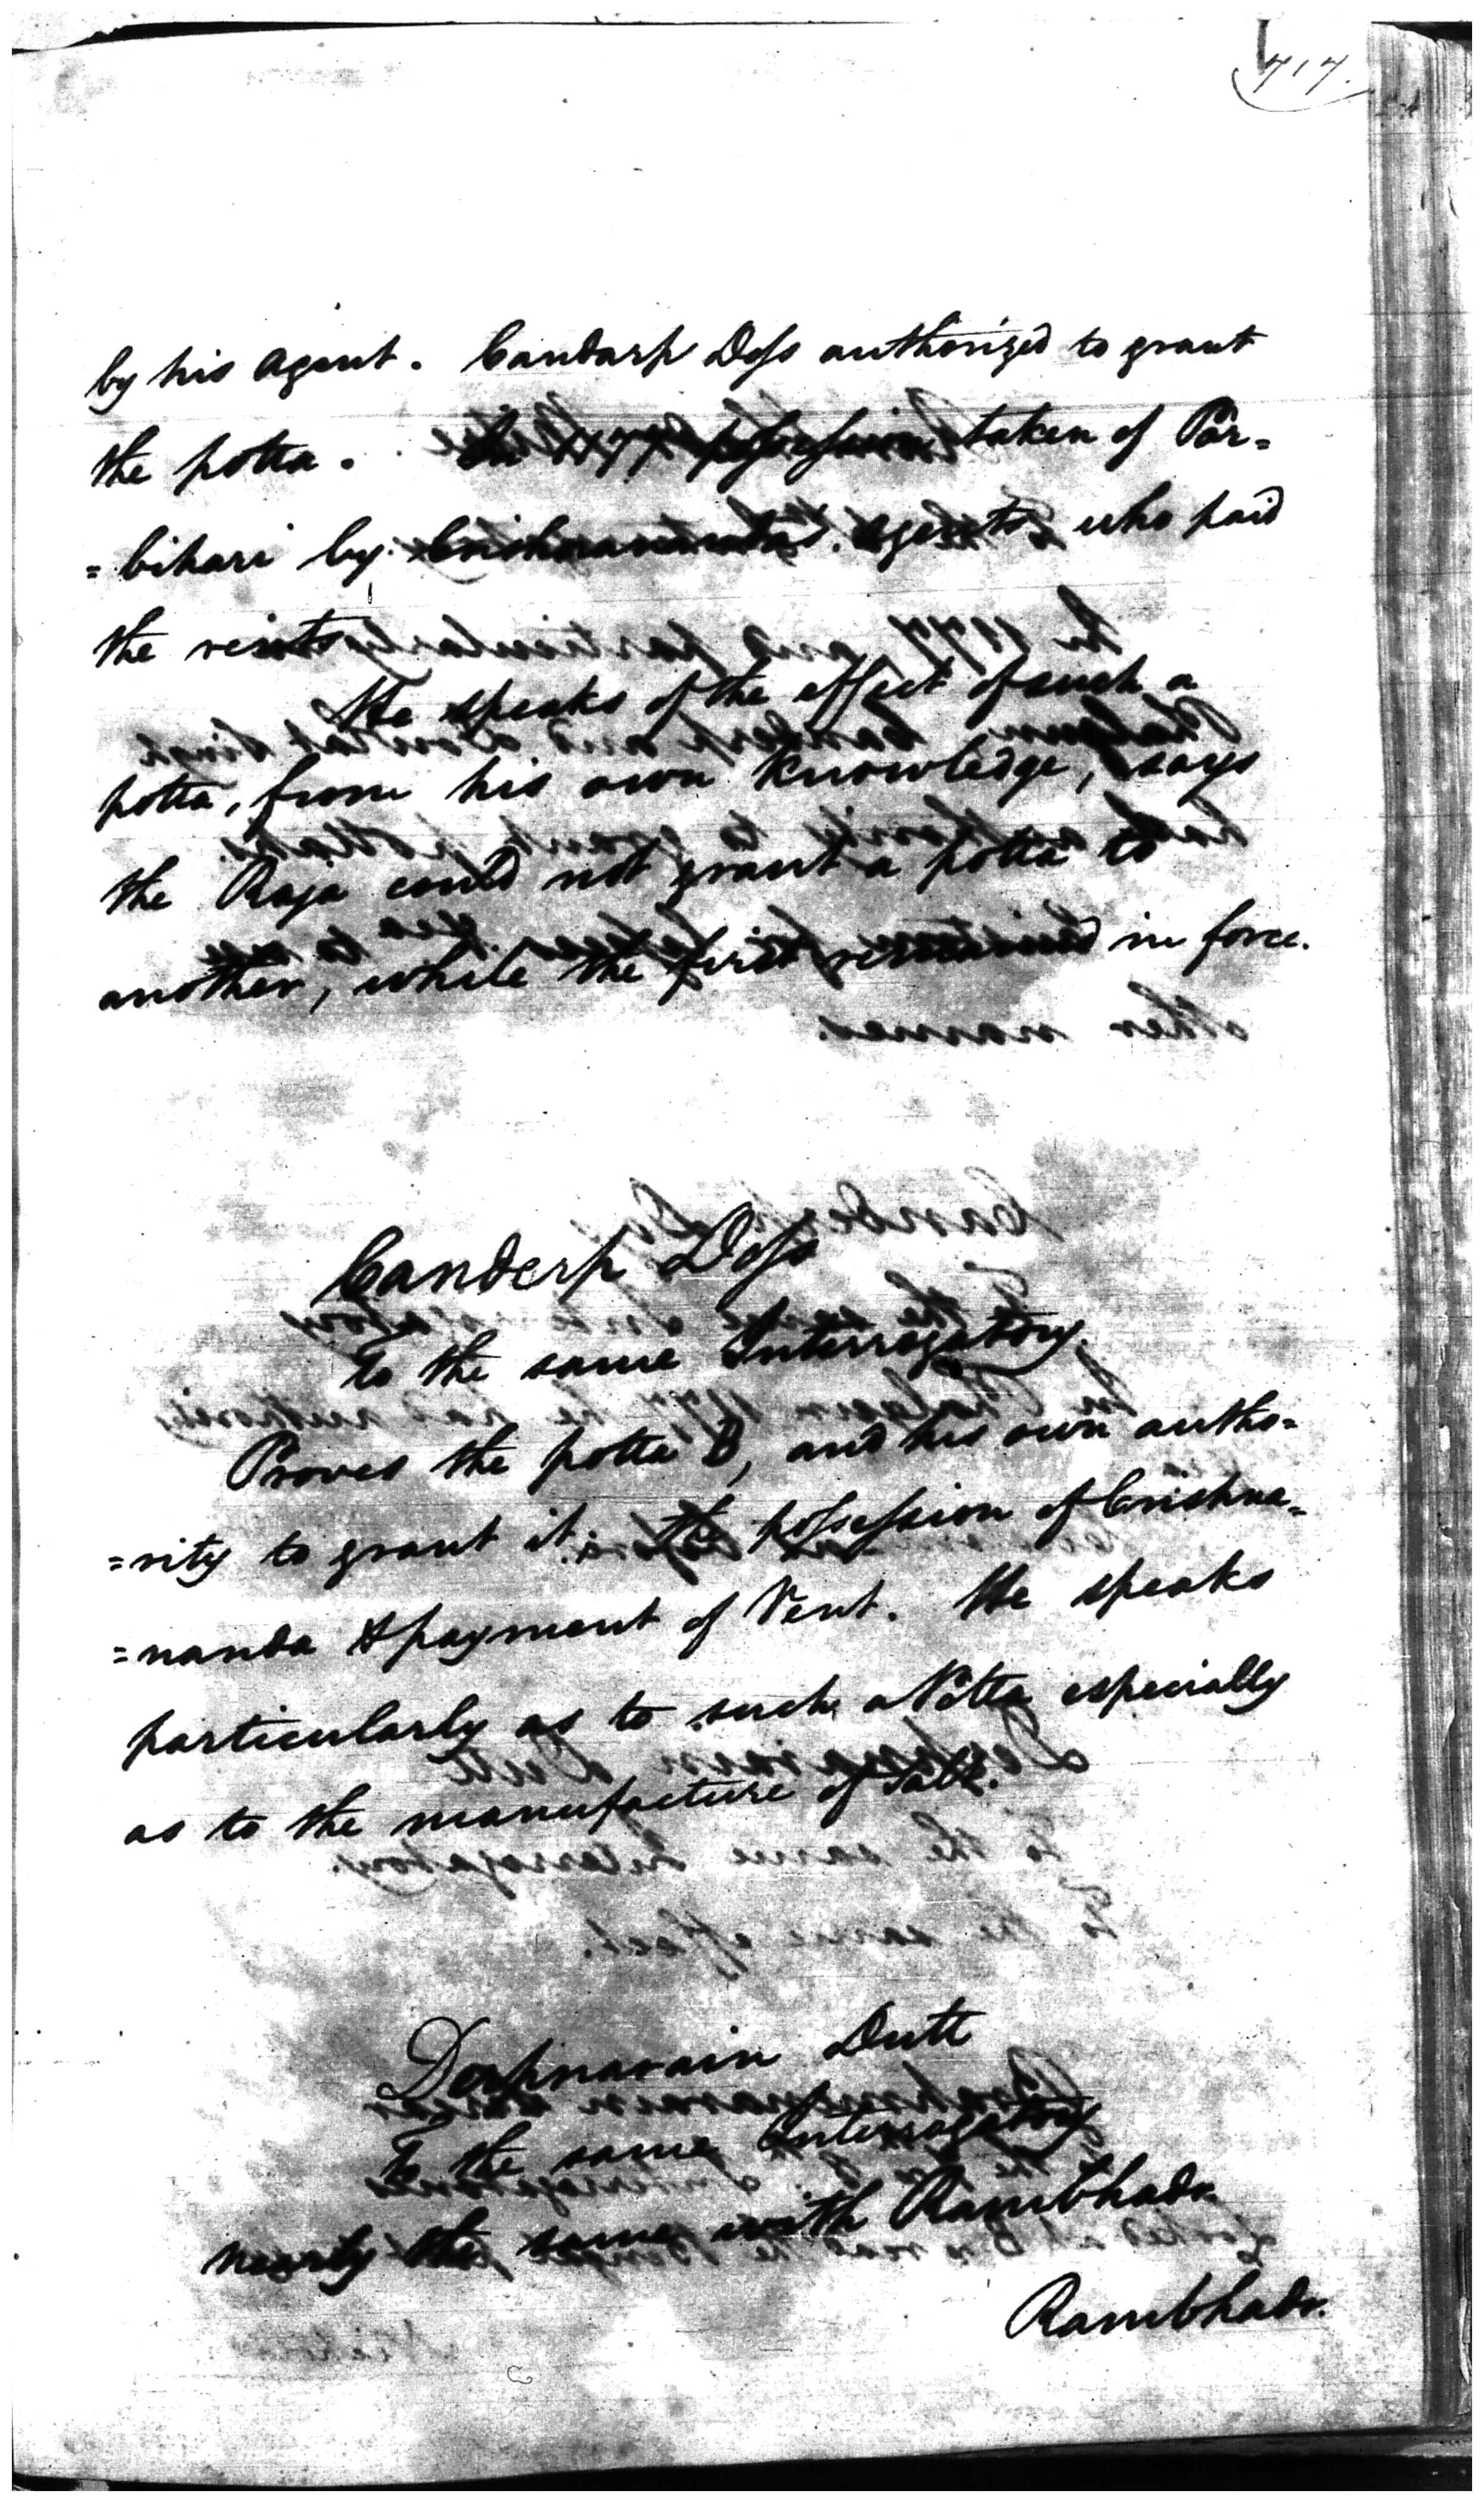 717.
by his agent. Candarp Dess authorized to grant
the potta. In 1177 possession taken of Par=
=bihari by Crishnananda's agents who paid
the rents
He speaks of the effect of such a
potta, from his own knowledge, says
the Raja could not grant a potta to
another, while the first remained in force.
Canderp Dess
To the same Interrogatory.
Proves the potta B, and his own autho=
=rity to grant it. The possession of Crishna=
=nanda & payment of Rent. He speaks
particularly as to such a Potta especially
as to the manufacture of Salt.
Derpnarain Dutt
To the same Interrogatory
nearly the same with Rambhadr.
Rambhadr.